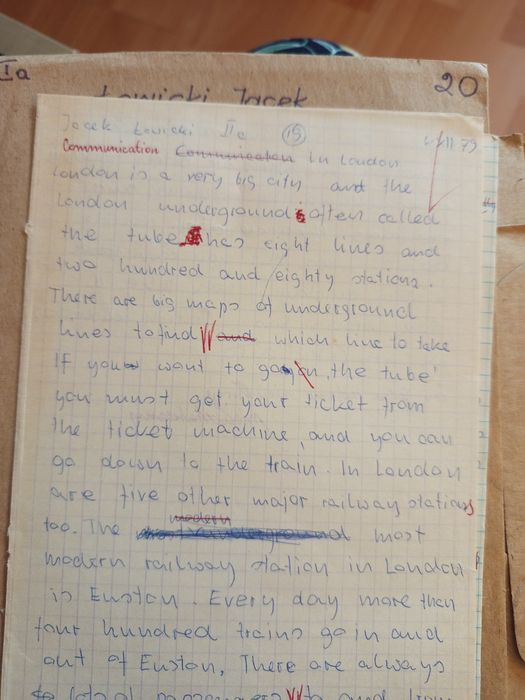 Ia
20
Łowicki Jacek
Jacek Łowicki IIa 15
79
Communication Communication in London
London is a very big city and the
London underground is often called
the tube. It has eight lines and
two hundred and eighty stations.
There are big maps of underground
lines to find and which line to take
If you want to go on the tube'
you must get your ticket from
the ticket machine, and you can
go down to the train. In London
are five other major railway stations
too. The modern most
modern railway station in London
is Euston. Every day more then
four hundred trains go in and
out of Euston, There are always
lots of passengers to and from